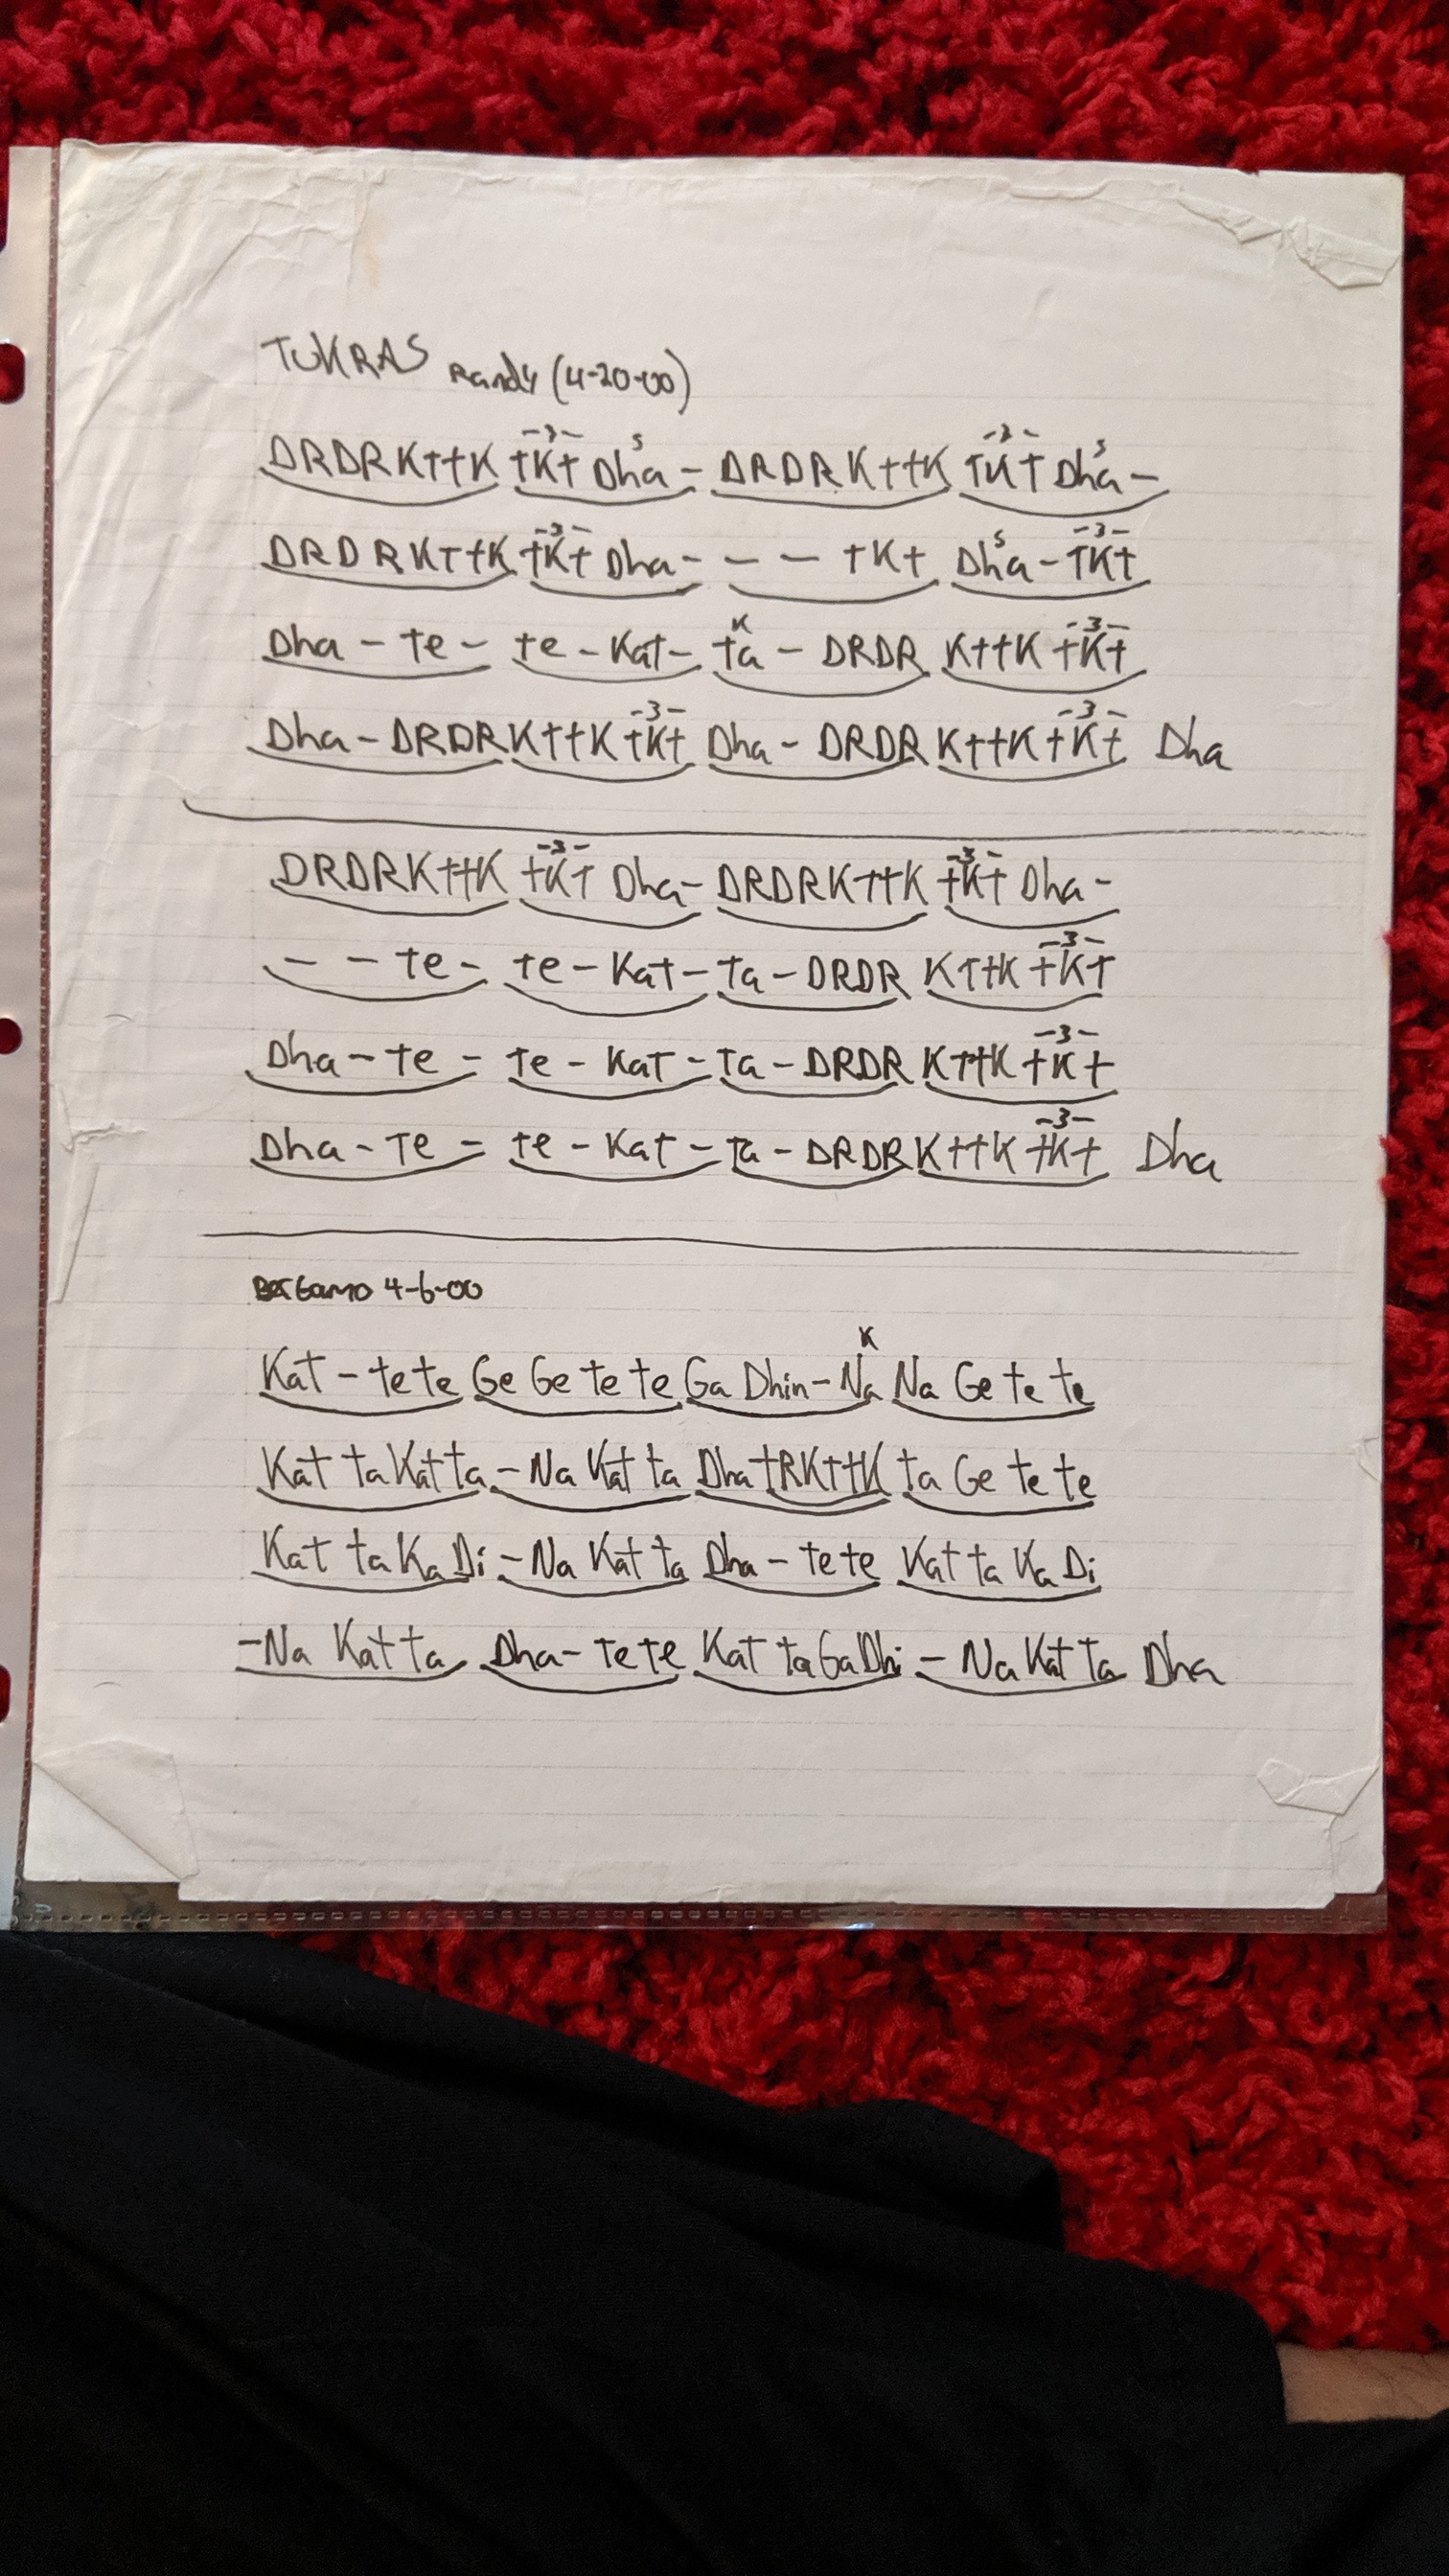 TUKRAS Randy (4-20-00)
-3- s -3- s
DRDRKttK tKt Dha - DRDRKttK tKt Dha -
-3- s -3-
DRDRKttK tKt Dha - - - tKt Dha - tKt
K -3-
Dha - te - te - Kat - ta - DRDR KttK tKt
-3- -3-
Dha - DRDRKttK tKt Dha - DRDR KttK tKt Dha
-3- -3-
DRDRKttK tKt Dha - DRDRKttK tKt Dha -
-3-
- - te - te - Kat - ta - DRDR KttK tKt
-3-
Dha - te - te - Kat - ta - DRDR KttK tKt
-3-
Dha - te - te - Kat - ta - DRDR KttK tKt Dha
4-6-00
K
Kat - te te Ge Ge te te Ga Dhin - Na Na Ge te te
Kat ta Kat ta - Na Kat ta Dha tRKttK ta Ge te te
Kat ta Ka Di - Na Kat ta Dha - te te Kat ta Ka Di
- Na Kat ta Dha - te te Kat ta Ga Dhi - Na Kat ta Dha